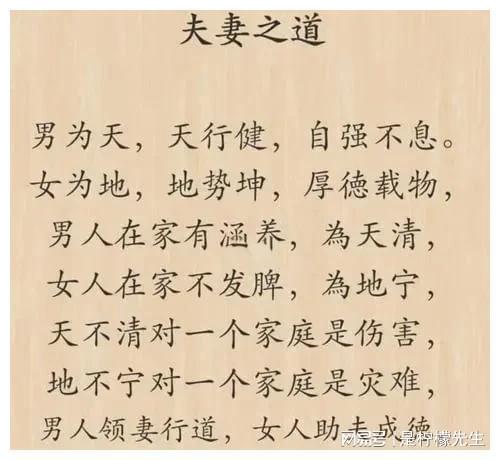 夫妻之道
男为天，天行健，自强不息。
女为地，地势坤，厚德载物，
男人在家有涵养，為天清，
女人在家不发脾，為地宁，
天不清对一个家庭是伤害，
地不宁对一个家庭是灾难，
男人领妻行道，女人助夫成德
搜狐号@是柠檬先生